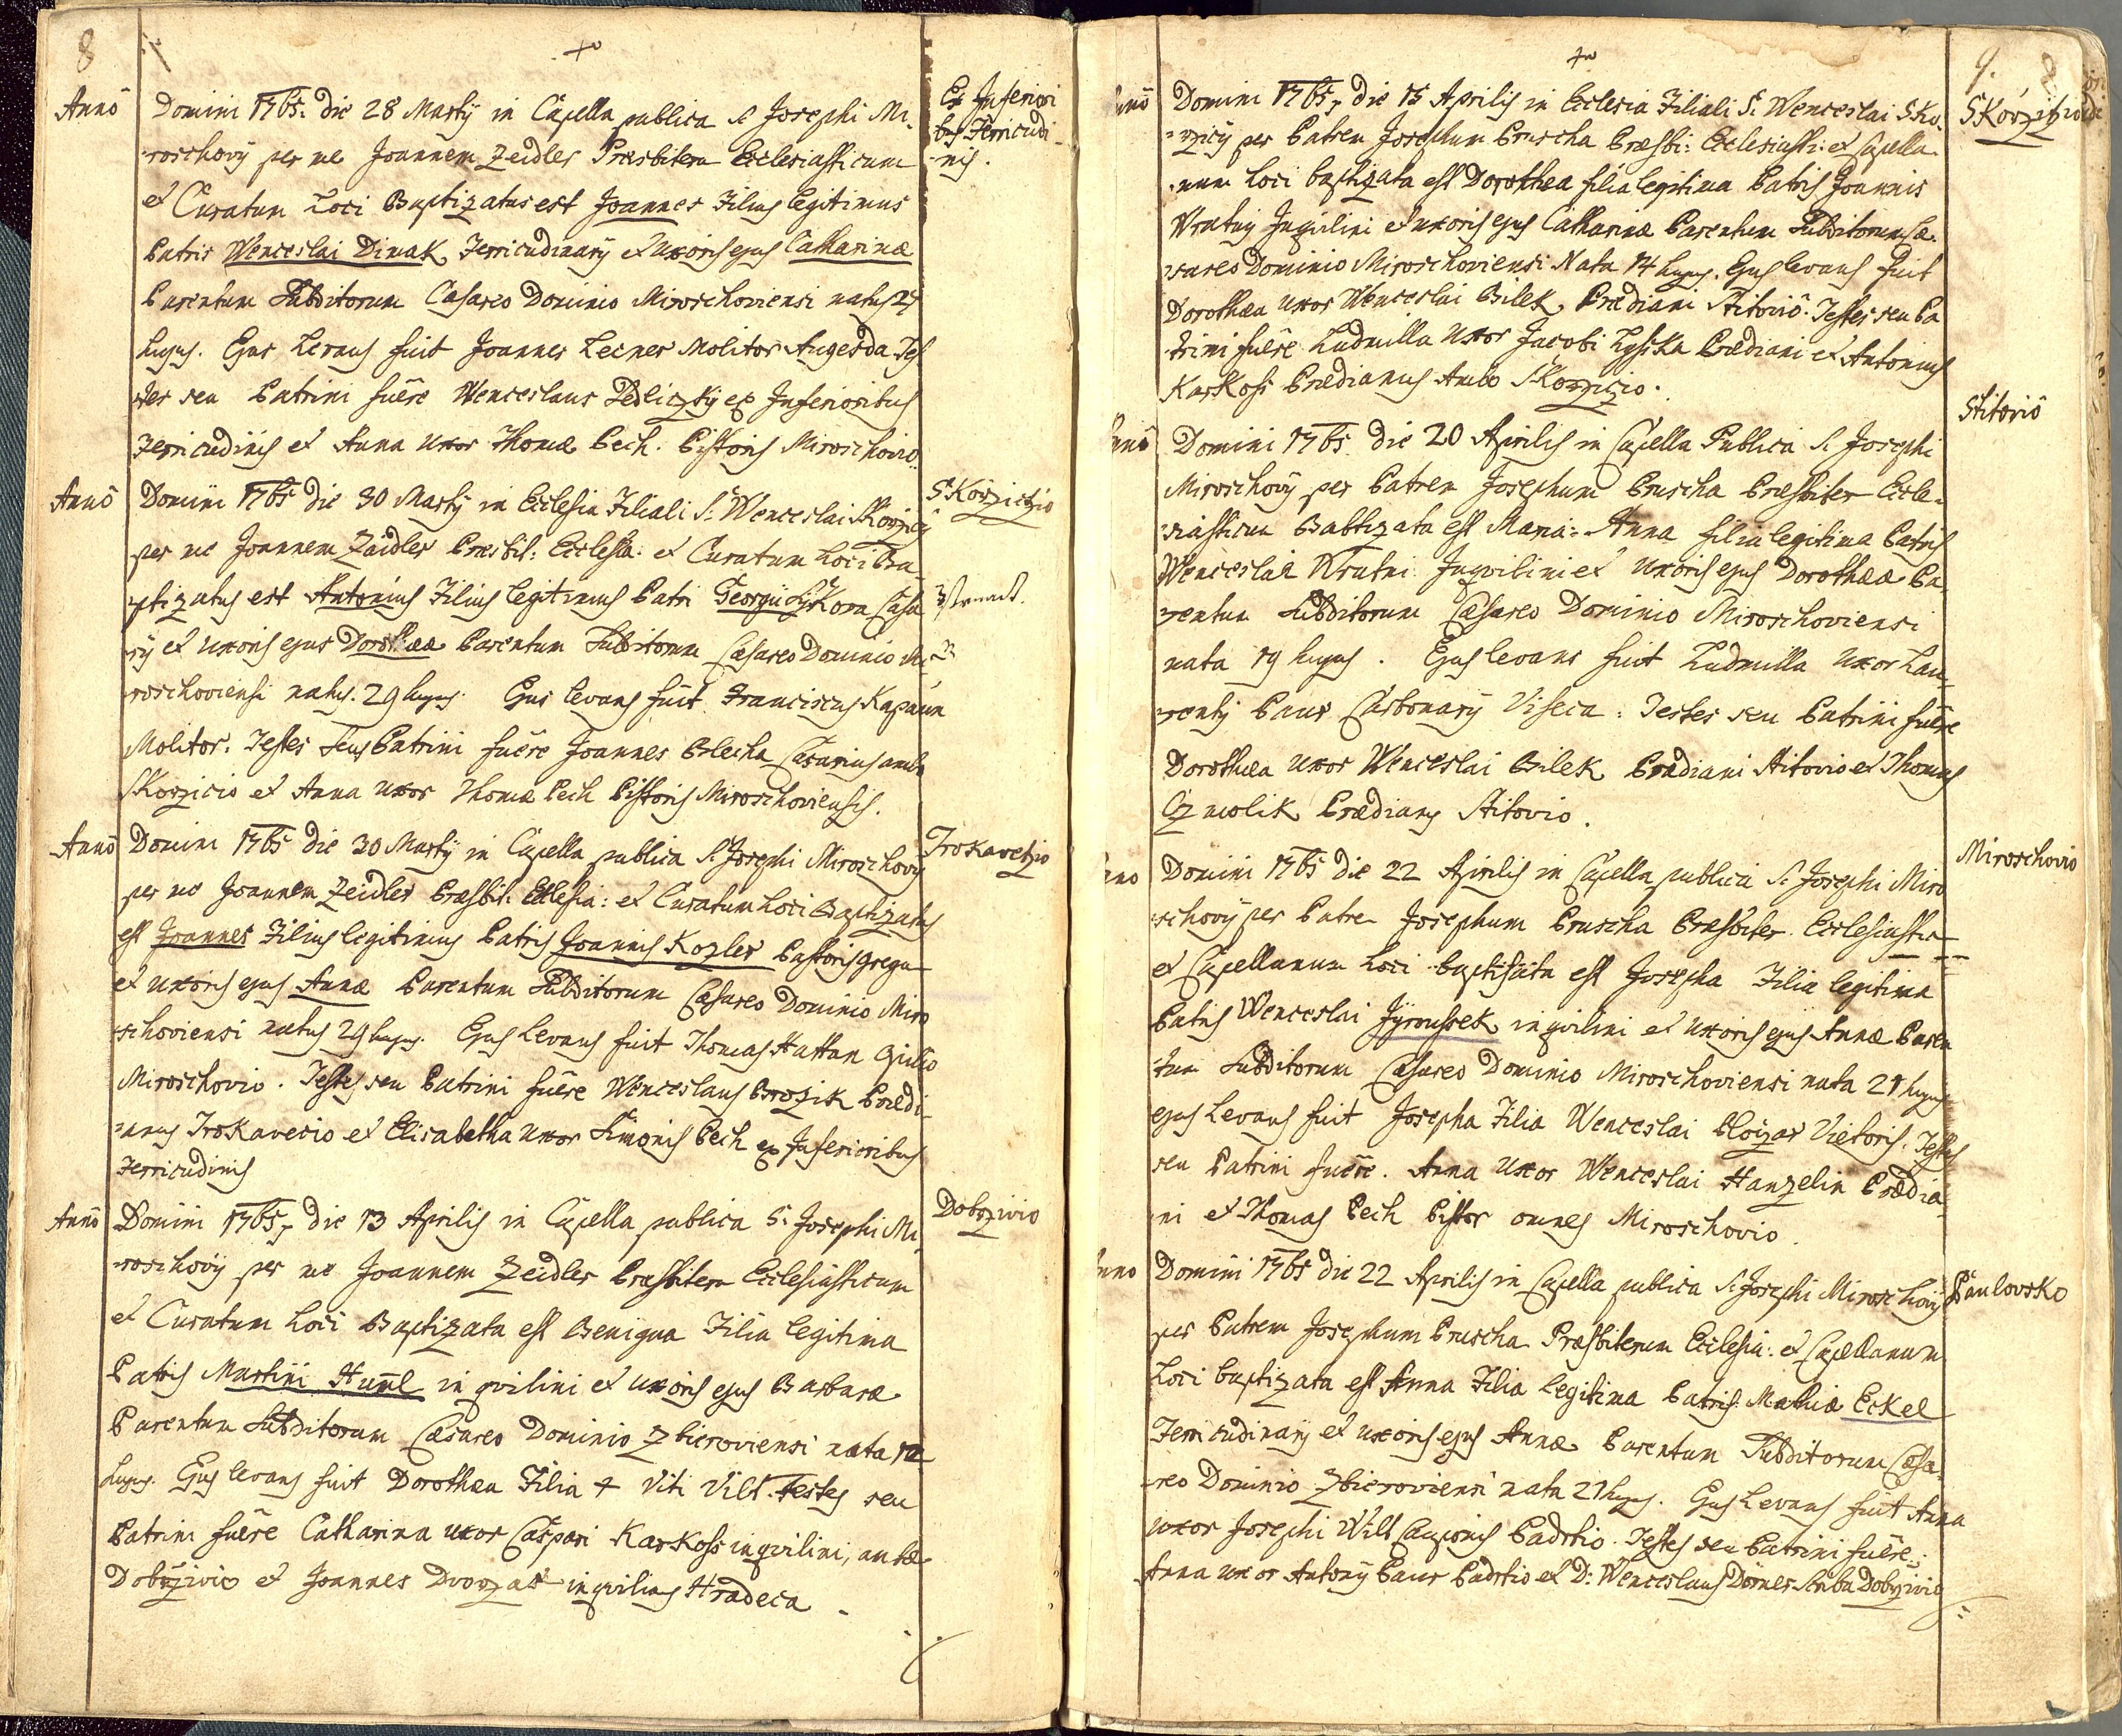 8
Annô Domini 1765. die 28 Martÿ in Capella publica S. Josephi Mi-
roschovÿ per me Joannem Zeidler Præsbiterum Ecclesiasticum
et Curatum Loci Baptizatus est Joannes Filius legitimus
Patris Wenceslai Dimak Ferricudinarÿ et Uxoris ejus Catharinæ
Parentum Subditorum Cæsareo Dominio Miroschoviensi natus 27
hujus. Ejus Levans fuit Joannes Lecner Molitor Augezda. Tes-
tes seu Patrini fuêre Wenceslaus Zedliczkÿ ex Inferioribus
Ferricudinis et Anna uxor Thomæ Pech. Pistoris Miroschovio.
Ex Inferiori
bus Ferricudi-
nis.
Annô Domini 1765 die 30 Martÿ in Ecclesia Filiali S. Wenceslai Skorzicÿ
per me Joannem Zaidler Præsbit: Ecclesia: et Curatum Loci Ba
ptizatus est Antonius Filius legitimus Patri Georgii Sÿkora Casa
rÿ et uxoris ejus Dorotheæ Parentum Subditorum Cæsareo Dominio Mi-
roschoviensi natus. 29 hujus. Ejus levans fuit Franciscus Kapaun
Molitor. Testes seus Patrini fuêre Joannes Blecha Casarius ambo
Skorzicio et Anna uxor Thomæ Pech Pistoris Miroschoviensis.
SKorzitzio
Annô Domini 1765 die 30 Martÿ in Capella publica S. Josephi Miroschovÿ
per me Joannem Zeidler Præsbit: Ecclesia: et Curatum Loci Baptizatus
est Joannes Filius legitimus Patris Joannis Kozler Pastoris gregu
et uxoris ejus Annæ Parentum Subditorum Cæsareo Dominio Miro
schoviensi natus 29 hujus. Ejus Levans fuit Thomas Hattan
Miroschovio. Testes seu Patrini fuêre Wenceslaus Brozik Prædi-
anus Trokavecio et Elisabetha Uxor Simonis Pech ex Inferioribus
Ferricudinis
Trokavetzio
Annô Domini 1765, die 13 Aprilis in Capella publica S. Josephi Mi-
roschovÿ per me Joannem Zeidler Præsbiterum Ecclesiasticum
et Curatum Loci Baptizata est Benigna Filia legitima
Patris Martini Hum̄l inqvilini et uxoris ejus Barbaræ
Parentum Subditorum Cæsareo Dominio Zbieroviensi nata 12
hujus. Ejus levans fuit Dorothea Filia + Viti Vilt. Testes seu
Patrini fuêre Catharina uxor Caspari Karkoss inqvilini, ambæ
Dobrziwio et Joannes Dvorzak inqvilinus Hradeca
Dobrziwio
9.
8
Annô Domini 1765, die 15 Aprilis in Ecclesia Filiali S. Wenceslai SKo-
rzicÿ per Patrem Josephum Pruscha Præsbi: Ecclesiasti: et Capella-
num Loci baptizata est Dorothea filia legitima Patris Joannis
Wratny Inqvilini et uxoris ejus Catharinæ Parentum Subditorum Cæ-
sareo Dominio Miroschoviensi Nata 14 hujus. Ejus levans fuit
Dorothea uxor Wenceslai Bilek Prædiani Stitoviô. Testes seu Pa
trini fuêre Ludmilla Uxor Jacobi Lyska Prædiani et Antonius
Karkoss Prædianus Ambo SKorzizio.
SKorzitzio
Annô Domini 1765 die 20 Aprilis in Capella Publica S. Josephi
Miroschovÿ per Patrem Josephum Pruscha Præsbiter Eccle-
siasticum Babtizata est Maria-Anna filia legitima Patris
Wenceslai Wratni Inqvilini et Uxoris ejus Dorotheæ Pa-
rentum Subditorum Cæsareo Dominio Miroschoviensi
nata 19 hujus. Ejus levans fuit Ludmilla Uxor Lau-
rentÿ Paur Carbonarÿ Viseca: Testes seu Patrini fuêre
Dorothea uxor Wenceslai Bilek Prædiani Stitovio et Thomas
Czmolik Prædianus Stitovio.
Stitoviô
Anno Domini 1765 die 22 Aprilis in Capella publica S. Josephi Miro
schovÿ per Patre Josephum Pruscha Præsbiter Ecclesiastic
et Capellanum Loci baptisata est Josepha Filia legitima
Patris Wenceslai Jÿroussek inqvilini et uxoris ejus Annæ Paren
tum Subditorum Cæsareo Dominio Miroschoviensi nata 21 hujus
ejus Levans fuit Josepha Filia Wenceslai Vietoris. Testes
seu Patrini fuêre. Anna Uxor Wenceslai Hanzelin Prædia-
ni et Thomas Pech Pistor omnes Miroschovio.
Miroschovio
Anno Domini 1765 die 22 Aprilis in Capella publica S. Josephi Miroschovÿ
per Patrem Josephum Pruscha Præsbiterum Ecclesia: et Capellanum
Loci baptizata est Anna Filia legitima Patris Mathiæ Eckel
Ferricudinarÿ et uxoris ejus Annæ Parentum Subditorum Cæsa-
reo Dominio Zbieroviensi nata 21 hujus. Ejus Levans fuit Anna
uxor Josephi Wilt Cauponis Padrtio. Testes seu Patrini fuêre:
Anna uxor Antonÿ Paur Padrtio et D: Wenceslaus Dörner Scriba Dobrziwio
Paulovsko